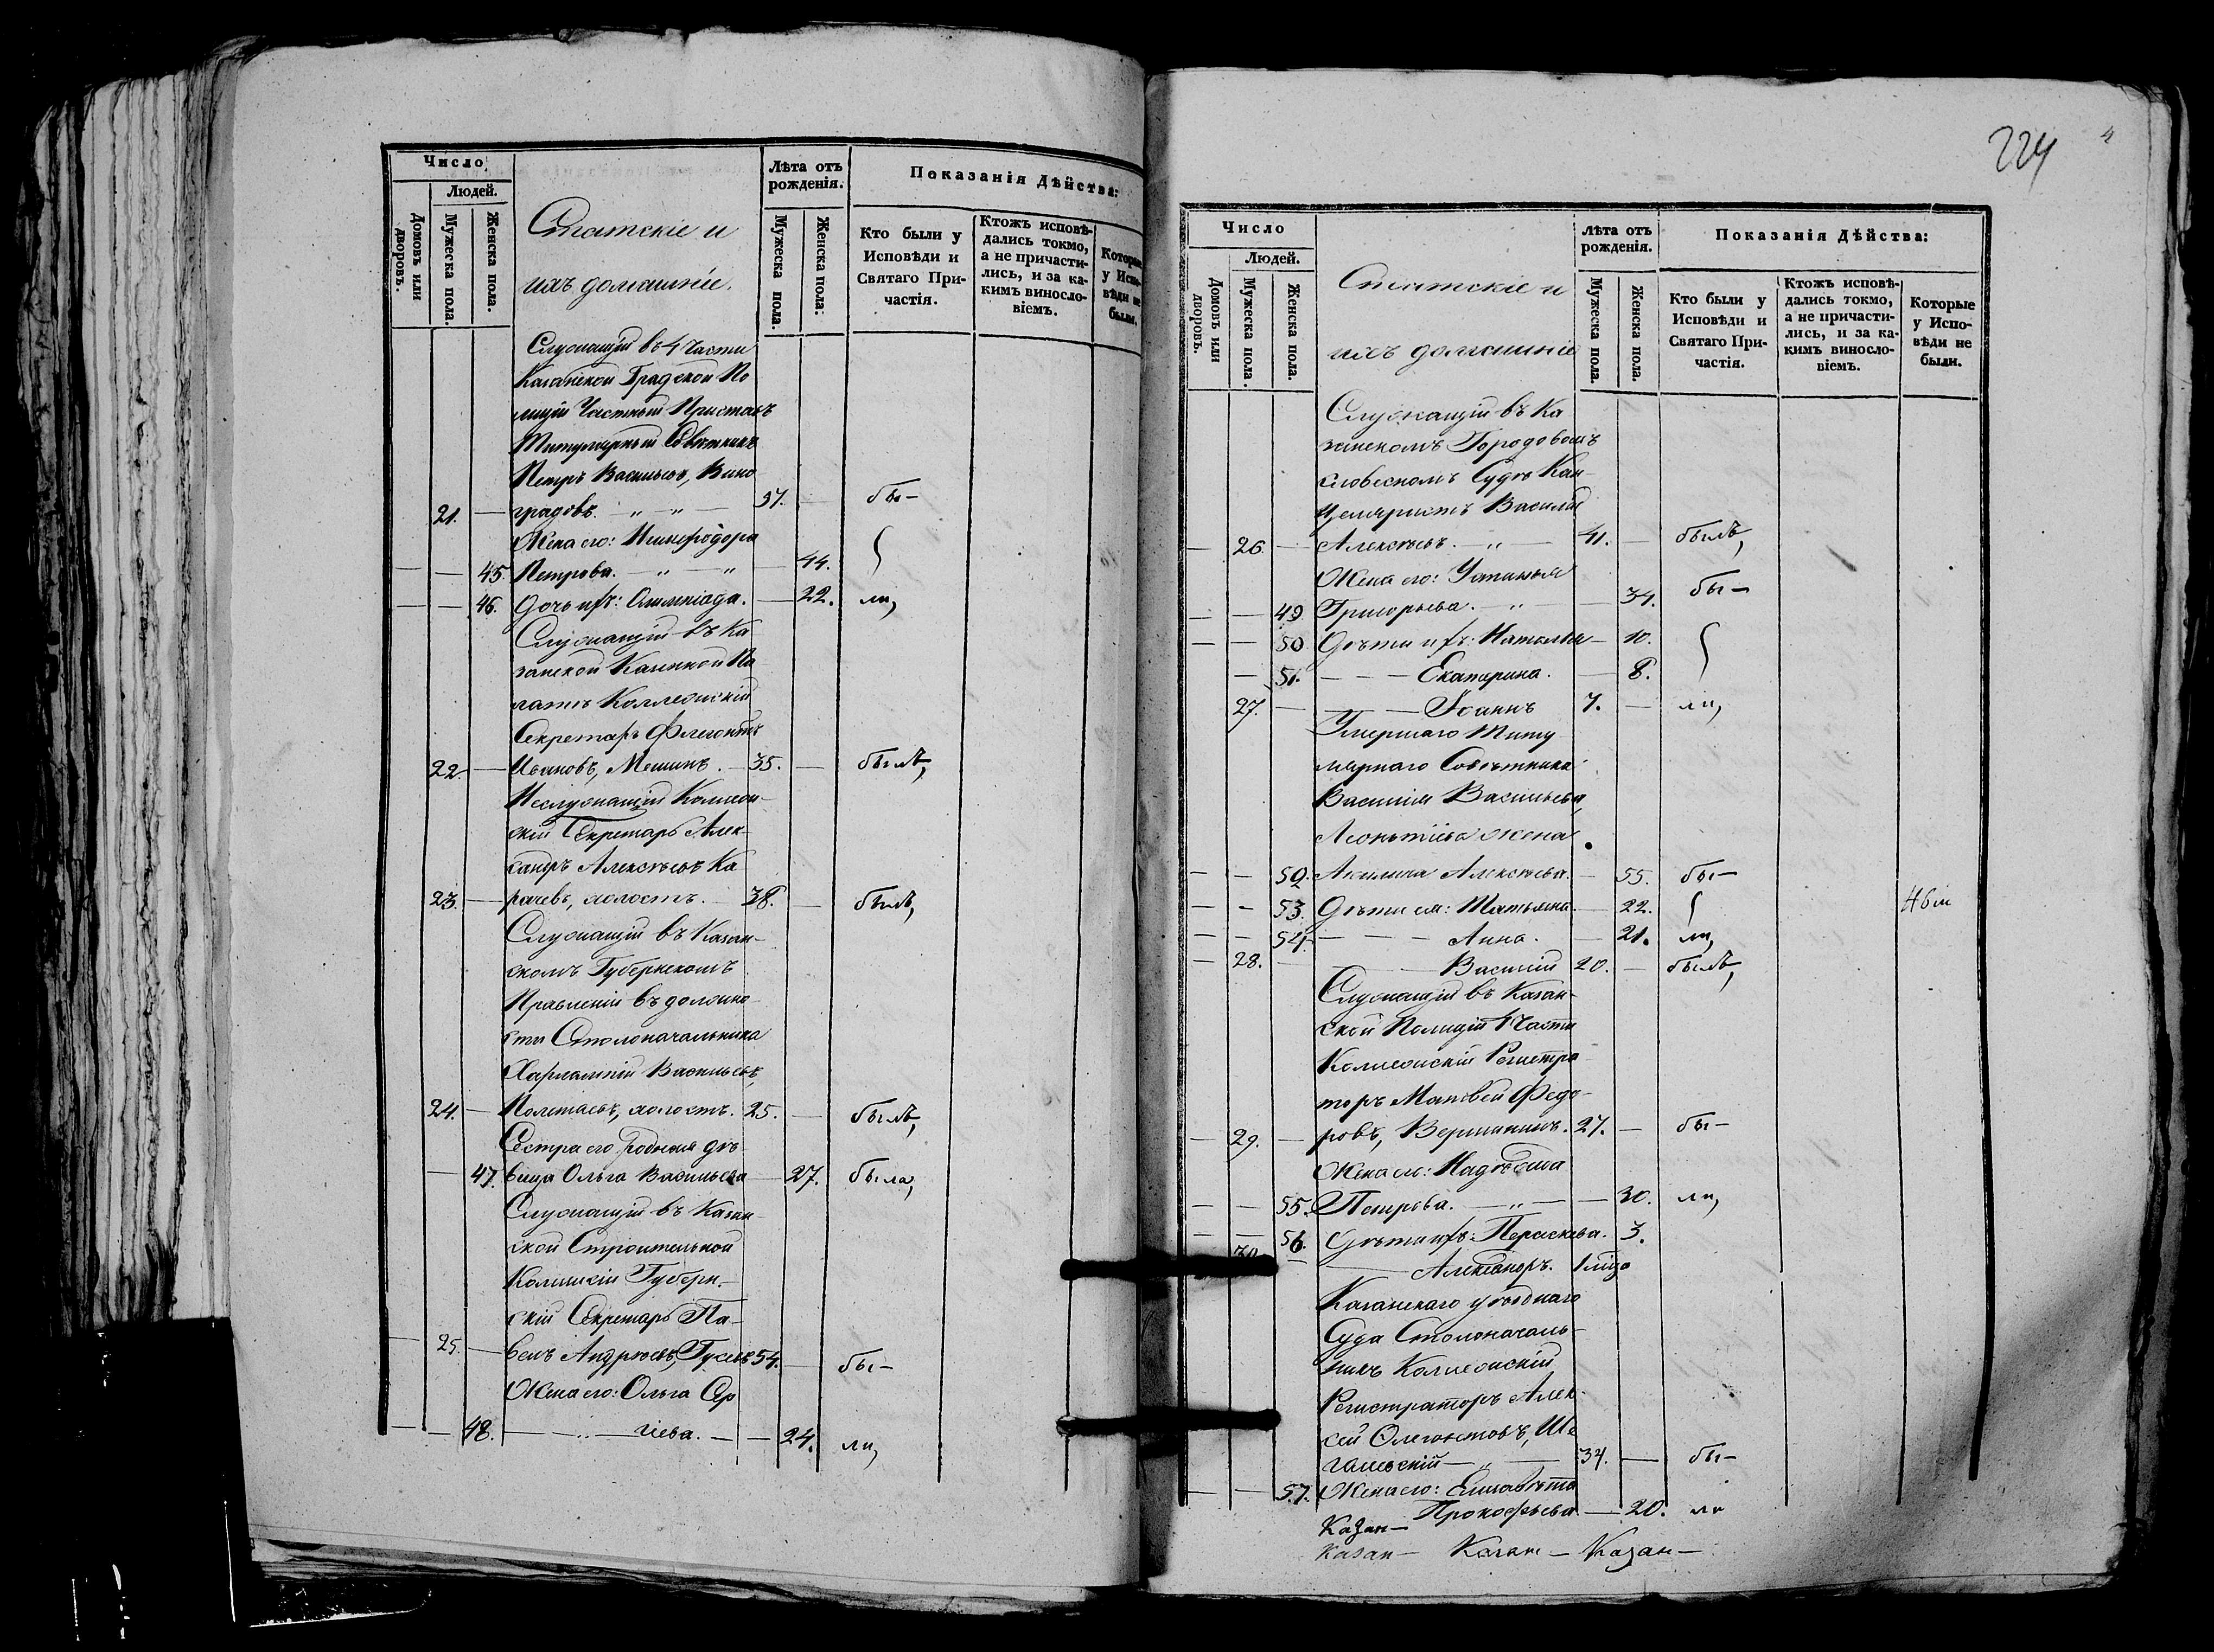 Число
Людей.
Домовъ или дворовъ.
Мужеска пола.
Женска пола.
Статскіе и
ихъ домашніе.
Лѣта отъ рожденія.
Мужеска пола.
Женска пола.
Показанія Дѣйства:
Кто были у Исповѣди и Святаго Причастія.
Ктожъ исповѣдались токмо, а не причастились, и за какимъ винословіемъ.
Которые у Исповѣди не были.
Служащій въ 4 Части
Казанской Градской По
лиціи Частный Приставъ
Титулярный Совѣтникъ
Петръ Васильевъ, Вино
21. — градовъ. — „ — „ — 57. — бы—
Жена его:
— — 45. Петрова. — „ — „ — 44.
— — 46. Дочь ихъ: Олимпіада. — 22. ли,
Служащій въ Ка
занской Казенной Па
латѣ Коллежскій
Секретарь Флегонтъ
22. — Ивановъ, Мешинъ. — 35. — былъ,
Неслужащій Коллеж-
скій Секретарь Алек-
сандръ Алексѣевъ Ка
23. — рачевъ, холостъ. — 38. — былъ,
Служащій въ Казан-
скомъ Губернскомъ
Правленіи въ должно
сти Столоначальника
Харлампій Васильевъ,
24. — Полетаевъ, холостъ. 25. — былъ,
Сестра его родная дѣ
— 47. вица Ольга Васильева — 27. была,
Служащій въ Казан-
ской Строительной
Комиссіи Губерн-
скій Секретарь Па-
— 25. — велъ Андреевъ, Гусевъ 54. — бы—
Жена его: Ольга Сер
— — 48. — „ — гіева. — — 24. ли,
224
4
Число
Людей.
Домовъ или дворовъ.
Мужеска пола.
Женска пола.
Статскіе и
ихъ домашніе
Лѣта отъ рожденія.
Мужеска пола.
Женска пола.
Показанія Дѣйства:
Кто были у Исповѣди и Святаго Причастія.
Ктожъ исповѣдались токмо, а не причастились, и за какимъ винословіемъ.
Которые у Исповѣди не были.
Служащій въ Ка
занскомъ Городовомъ
словесномъ Судѣ Кан-
целяристъ Василій
— 26. — Алексѣевъ. — „ — 41. — былъ,
Жена его: Устинья
— — 49 Григорьева. — „ — — 34. бы—
— — 50 Дѣти ихъ: Наталья — 10.
— 51. — — — Екатерина. — 8.
27. — — — Іоаннъ 7. — ли,
Умершаго Титу
лярнаго Совѣтника
Василія Васильева,
Леонтіева жена
— — 52. Акилина Алексѣева. — 55. бы—
— — 53. Дѣти ея: Татьяна. — 22.
— — 54. — — — Анна. — 21. ли,
— 28. — — — Василій 20. — былъ,
Служащій въ Казан-
ской Полиціи 4 Части
Коллежскій Регистра
торъ Матвей Федо-
— 29. — ровъ, Вершининъ. 27. — бы—
Жена его: Надежда
— — 55. Петрова. — „ — — 30. ли,
— — 56. Дѣти ихъ: Параскева. 3.
30 — — Александръ. 1
Казанскаго уѣзднаго
Суда Столоначаль-
никъ Коллежскій
Регистраторъ Алек-
сей Флегонтовъ,
— „ — 34. — бы—
— — 57. Жена его: Елисавета
Прокофьева — 20. ли
Казан—
Казан— Казан— Казан—